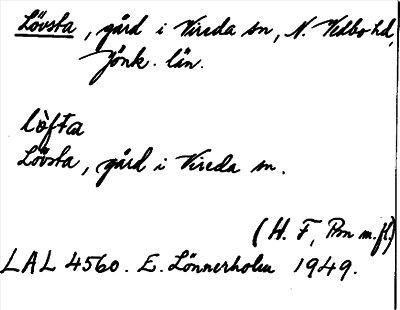 Lövsta, gård i Vireda sn, N. Vedbo hd,
Jönk. län.
lo᷄̀fta
Lövsta, gård i Vireda sn.
(H. F, Pm m.fl.)
LAL 4560. E. Lönnerholm 1949.